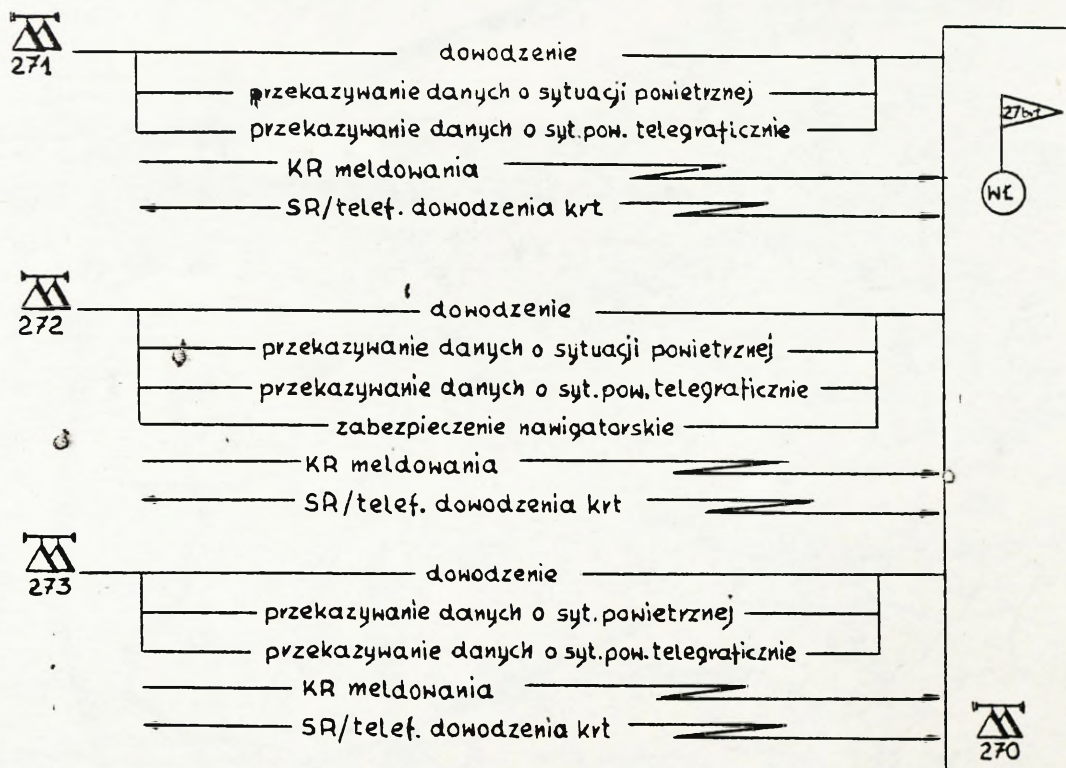 271
dowodzenie
przekazywanie danych o sytuacji powietrznej
przekazywanie danych o syt.pow. telegraficznie
KR meldowania
SR/telef. dowodzenia krt
WŁ
272
dowodzenie
przekazywanie danych o sytuacji powietrznej
przekazywanie danych o syt.pow. telegraficznie
zabezpieczenie nawigatorskie
KR meldowania
SR/telef. dowodzenia krt
273
dowodzenie
przekazywanie danych o syt. powietrznej
przekazywanie danych o syt.pow. telegraficznie
KR meldowania
SR/telef. dowodzenia krt
270